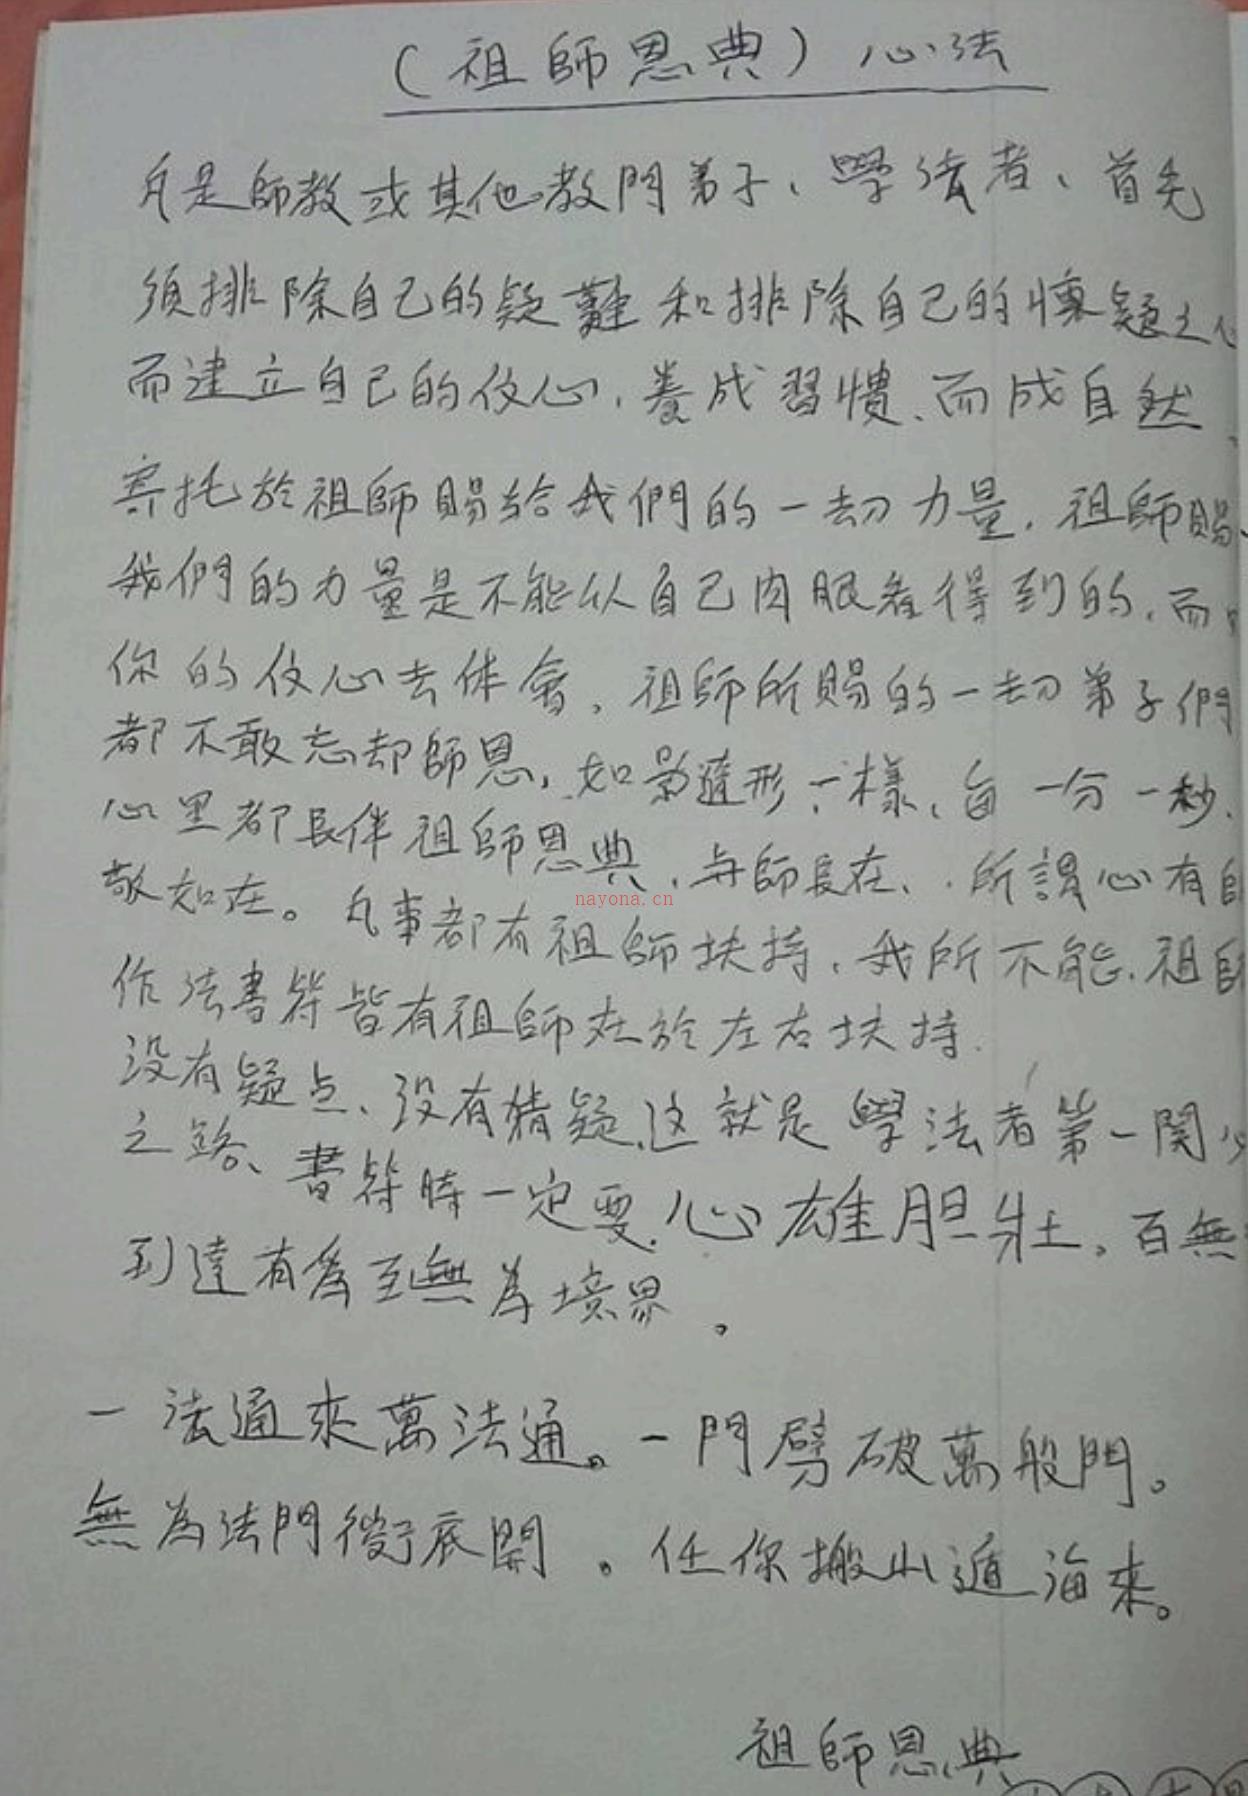 （祖師恩典）心法
凡是師教或其他教門弟子、學法者、首先
須排除自己的疑難和排除自己的懷疑之心
而建立自己的仗心，養成習慣、而成自然、
寄托於祖師賜給我們的一切力量，祖師賜
我們的力量是不能从自己肉眼看得到的，而
你的仗心去体會，祖師所賜的一切弟子們
都不敢忘却師恩，如影隨形一樣，每一分一秒、
心里都長伴祖師恩典，与師長在、所謂心有
敬如在。凡事都有祖師扶持，我所不能，祖師
作法書符皆有祖師在於左右扶持.
没有疑点、没有猜疑，这就是學法者第一関
之路、書符時一定要心雄胆壮。百無
到達有為至無為境界。
一法通來萬法通。一門劈破萬般門。
無為法門徹底開。任你搬山遁海來。
祖師恩典
nayona.cn